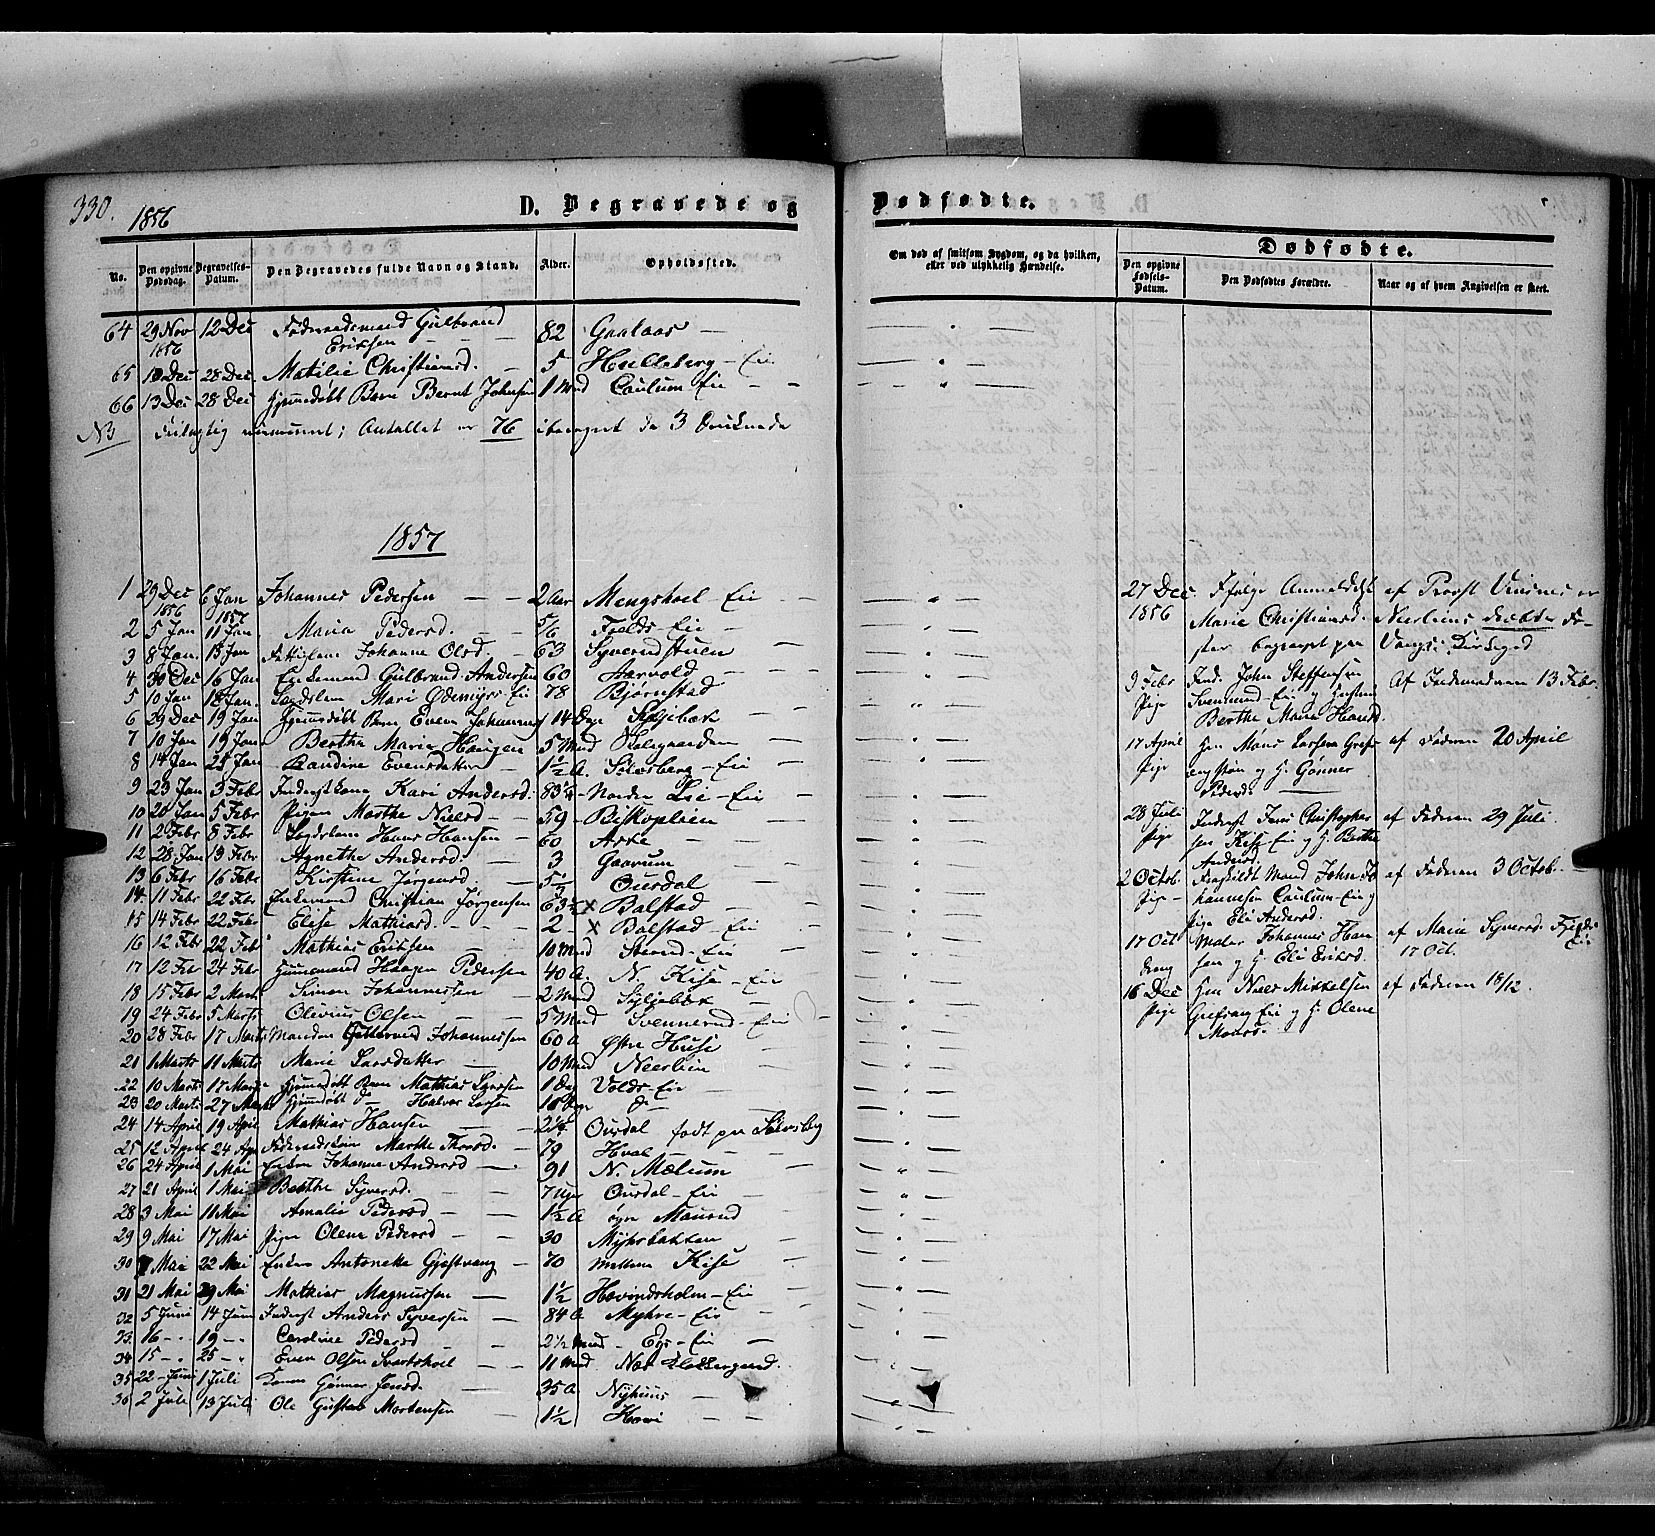 330.
1856
D. Begravede og
No.
Den opgivne Dødsdag.
Begravelses-Datum.
Den Begravedes fulde Navn og Stand.
Alder.
Opholdssted.
64 29 Nov 12 Dec Føderaadsmand Gulbrand 82 Gaalaas —
1856 Eriksen — —
65 10 Dec 28 Dec Matilie Christiansd. — 5 Hulleberg — Eie
66 13 Dec 28 Dec Hjemmedøbt Barn Bernt Johnsen 1 Mnd Caulum Eie — —
NB Feilagtig nummereret; Antallet er 76 iberegnet de 3
1857
1 29 Dec 1856 6 Jan 1857 Johannes Pedersen — — 2 Aar Mengshoel — Eie —
2 5 Jan 11 Jan. Maria Pedersd. — — 5/6 Fjelds — Eie —
3 8 Jan. 15 Jan Fattiglem Johanne Olsd. — 63 Syverudstuen —
4 30 Dec 16 Jan Enkemand Gulbrand Andersen 60 Aarvold —
5 10 Jan 18 Jan. Lægdslem Mari Ødemyrs-Eie 78 Bjørnstad
6 29 Dec 19 Jan Hjemmedøbt Barn Even Johannes 14 Dage Seljebæk — —
7 10 Jan 19 Jan Berthe Marie Haagen 5 Mnd Holsgaarden —
8 14 Jan 25 Jan Randine Evensdatter — 1½ A. Sølvsberg — Eie —
9 23 Jan 3 Febr Inderstkone Kari Andersd. 83¼ Nordre Lie — Eie —
10 20 Jan 5 Febr Pigen Marthe Nielsd — — 59 Biskoplien —
11 2 Febr 8 Febr Lægdslem Hans Hansen — 60 Arke — —
12 28 Jan 13 Febr Agnethe Andersd. — 3 Gaarum —
13 6 Febr 16 Febr Kirstine Jørgensd. — 5½ Ousdal —
14 11 Febr 22 Febr Enkemand Christian Jørgensen 63½ x Balstad —
15 14 Febr 22 Febr Elise Mathiasd. — — 2 x Balstad — Eie —
16 12 Febr 22 Febr Mathias Eriksen — 10 Mnd Strand — Eie —
17 12 Febr 24 Febr Huusmand Haagen Pedersen 40 A. N. Kise — Eie
18 15 Febr 2 Marts Simon Johannessen — 2 Mnd Seljebæk —
19 24 Febr 5 Marts Olivius Olsen — — 5 Mnd Svennerud — Eie
20 28 Febr 17 Marts Manden Johannessen 60 A Østre Huse —
21 1 Marts 11 Marts Marie Larsdatter — 10 Mnd Neerlien —
22 10 Marts 17 Marts Hjemmedøbt Barn Mathias Larsen 1 Dag Volds — Eie
23 20 Marts 27 Marts Hjemmedøbt Do Halvor Larsen 10 Dage Do
24 14 April 19 April Mathias Hansen — Ousdal født paa Sølvsberg
25 12 April 24 Apr Marthe Thorsd. 79 Hval —
26 24 April 1 Mai Enken Johanne Andersd — 91 N. Mælum —
27 21 April 1 Mai Berthe Syversd. — — 7 Uger Ousdal — Eie —
28 3 Mai 11 Mai Amalie Pedersd — — 1½ A Øvre Maurud
29 9 Mai 17 Mai Pige Olene Pedersd — 30 Myhrbakken —
30 7 Mai 22 Mai Enken Antonette Gjøstvang — 70 Mellem Kise —
31 21 Mai 29 Mai Mathias Magnussen — 1½ Hovindsholm — Eie —
32 5 Juni 14 Juni Inderst Anders Syversen — 84 A Myhre — Eie
33 16 — 19 — Caroline Pedersd — 2½ Mnd Eie —
34 15 — 25 — Even Olsen Svartshoel — 11 Mnd Næs Klokkergaard.
35 22 Juni 1 Juli Konen Gønner Jensd. — 35 A Nyhuus —
36 2 Juli 13 Juli Ole Gustav Mortensen — 1½ Hovi — —
Dødfødte.
Om død af smitsom Sygdom, og da hvilken,
eller ved ulykkelig Hændelse.
Dødfødte.
Den opgivne Fødsels-Datum.
Den Dødfødtes Forældre.
Naar og af hvem Angivelsen er skeet.
27 Dec 1856 Ifølge Anmeldelse af Provst er
Marie Christiansd. Neerliens døbte
ster begravet paa Vangs Kirkegd
9 Febr Pige Ind. John Steffensen Af Jordemoderen 13 Febr.
Svennerud Eie og Hustru
Berthe Marie Hansd.
17 April Pige Gm. Møns Larsen af Faderen 20 April
og H. Gønner
Pedersd. —
28 Juli Pige Inderst Jens Christophersen Kise Eie og H. Berthe Andersd. af Faderen 29 Juli.
2 Octob. Pige Fraskildt Mand John Johannesen Caulum Eie og af Faderen 3 Octob. —
Pige Eli Andersd.
17 Oct Dreng Maler Johannes Hansen og H. Eli Eriksd. af Marie Syversd. Fjelds Eie 17 Oct.
16 Dec Pige Gm Niels Mikkelsen af Faderen 18/12.
Grefvang Eie og H. Olene
Monsd.